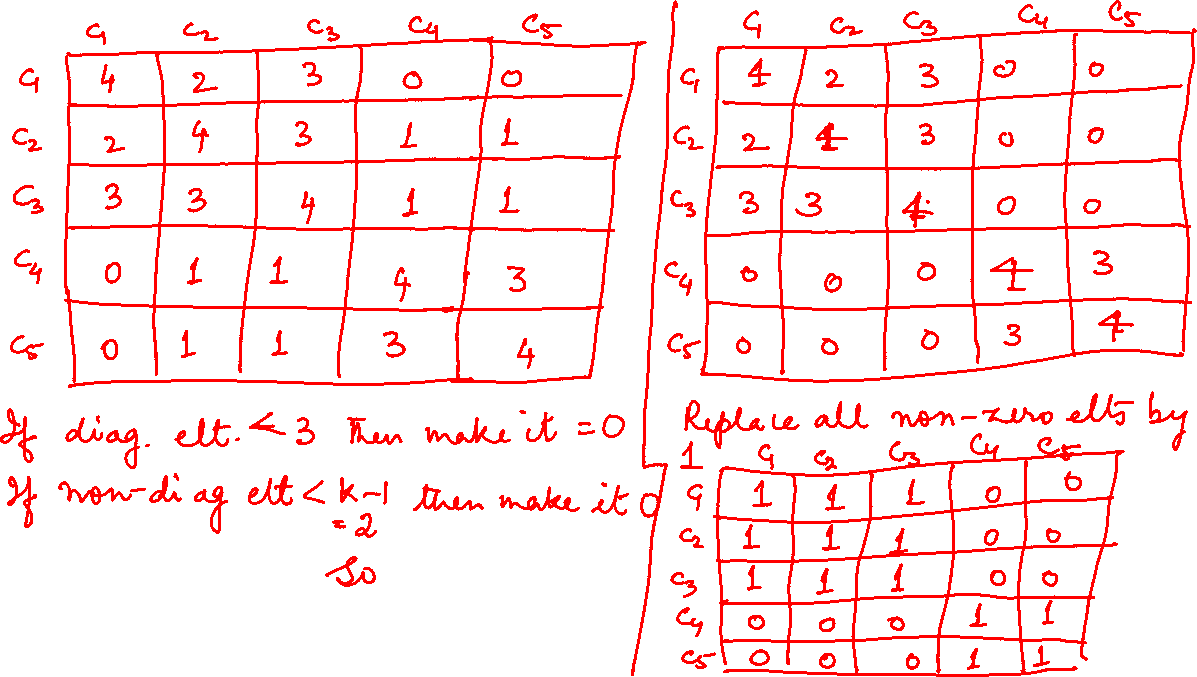 C1 C2 C3 C4 C5
C1 4 2 3 0 0
C2 2 4 3 1 1
C3 3 3 4 1 1
C4 0 1 1 4 3
C5 0 1 1 3 4
If diag. elt. < 3 then make it = 0
If non-diag elt < k-1 then make it 0
= 2
So
C1 C2 C3 C4 C5
C1 4 2 3 0 0
C2 2 4 3 0 0
C3 3 3 4 0 0
C4 0 0 0 4 3
C5 0 0 0 3 4
Replace all non-zero elts by
1
C1 C2 C3 C4 C5
C1 1 1 1 0 0
C2 1 1 1 0 0
C3 1 1 1 0 0
C4 0 0 0 1 1
C5 0 0 0 1 1